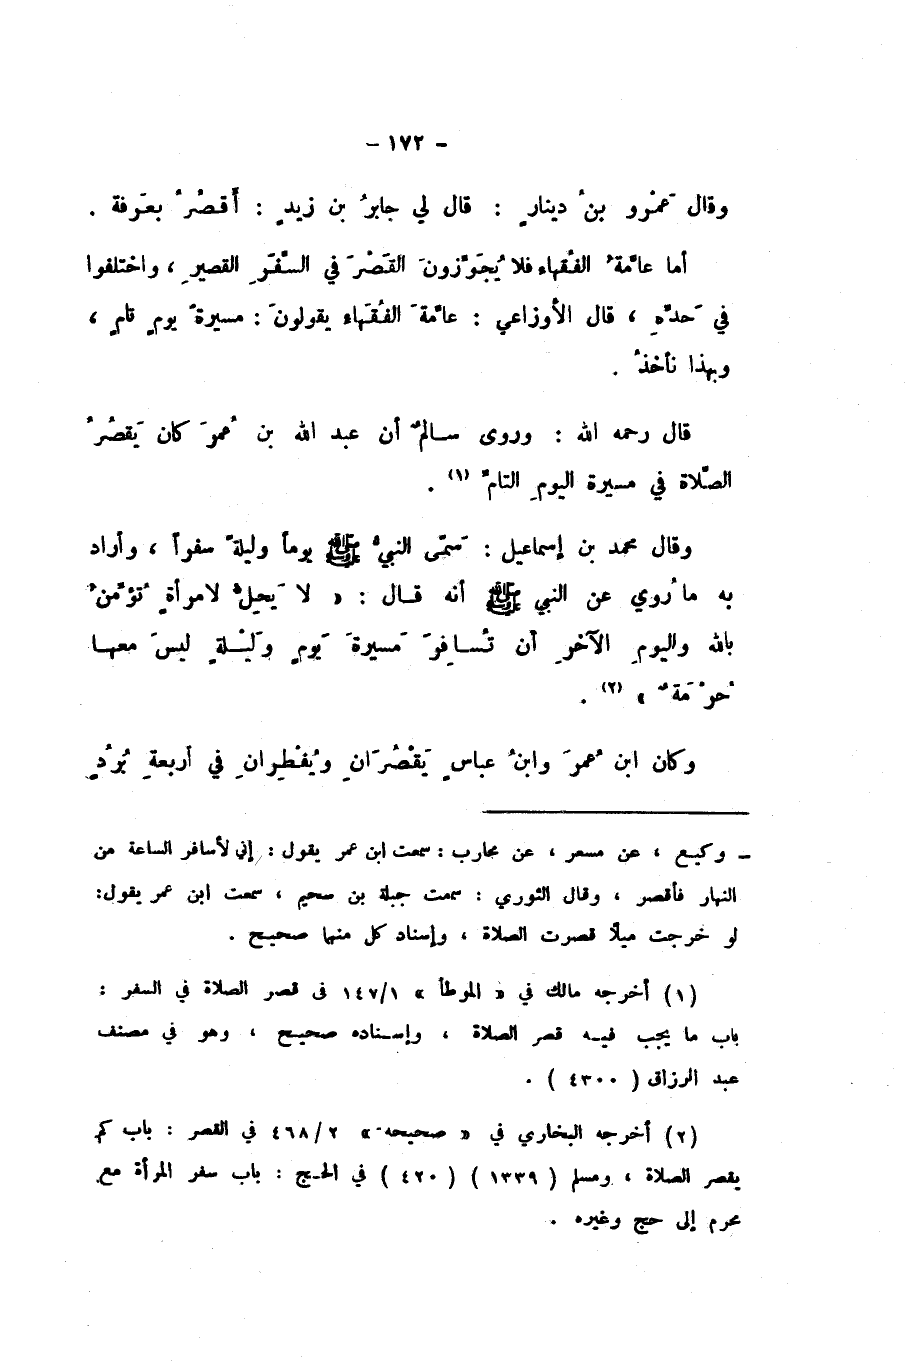 - ١٧٢ -
وقال عَمْرو بنُ دينارٍ : قال لي جابرُ بن زيدٍ : أَقصُرُ بعَرفة .
أما عامّةُ الفُقهاء فلا يُجَوّزونَ القَصْرَ في السَّفَرِ القصيرِ ، واختلفوا
في حَدِّهِ ، قال الأوزاعي : عامّةَ الفُقَهاء يقولونَ : مسيرةَ يومٍ تامٍ ،
وبهذا نأخذُ .
قال رحمه الله : وروى سالمٌ أن عبد الله بن عُمرَ كان يَقصُرُ
الصّلاة في مسيرة اليومِ التامّ (١) .
وقال محمد بن إسماعيل : سَمّى النبيُ ﷺ يوماً وليلةً سفراً ، وأراد
به ما رُوي عن النبي ﷺ أنه قال : « لا يَحِلُّ لامرأةٍ تُؤمنُ
بالله واليومِ الآخرِ أن تُسافِرَ مَسيرةَ يَومٍ ولَيْلةٍ ليسَ معها
حُرْمَةٌ » (٢) .
وكان ابن عُمرَ وابنُ عباسٍ يَقْصُرَانِ ويُفْطِرانِ في أربعةِ بُرُدٍ
ـ وكيع ، عن مسعر ، عن محارب : سمعت ابن عمر يقول : إني لأسافر الساعة من
النهار فأقصر ، وقال الثوري : سمت جبلة بن سحيم ، سمعت ابن عمر يقول:
لو خرجت ميلاً قصرت الصلاة ، وإسناد كل منها صحيح .
(١) أخرجه مالك في « الموطأ » ١٤٧/١ فى قصر الصلاة في السفر :
باب ما يجب فيه قصر الصلاة ، وإسناده صحيح ، وهو في مصنف
عبد الرزاق ( ٤٣٠٠ ) .
(٢) أخرجه البخاري في « صحيحه » ٤٦٨/٢ في القصر : باب كم
يقصر الصلاة ، ومسلم ( ١٣٣٩ ) ( ٤٢٠ ) في الحج : باب سفر المرأة مع
محرم إلى حج وغيره .